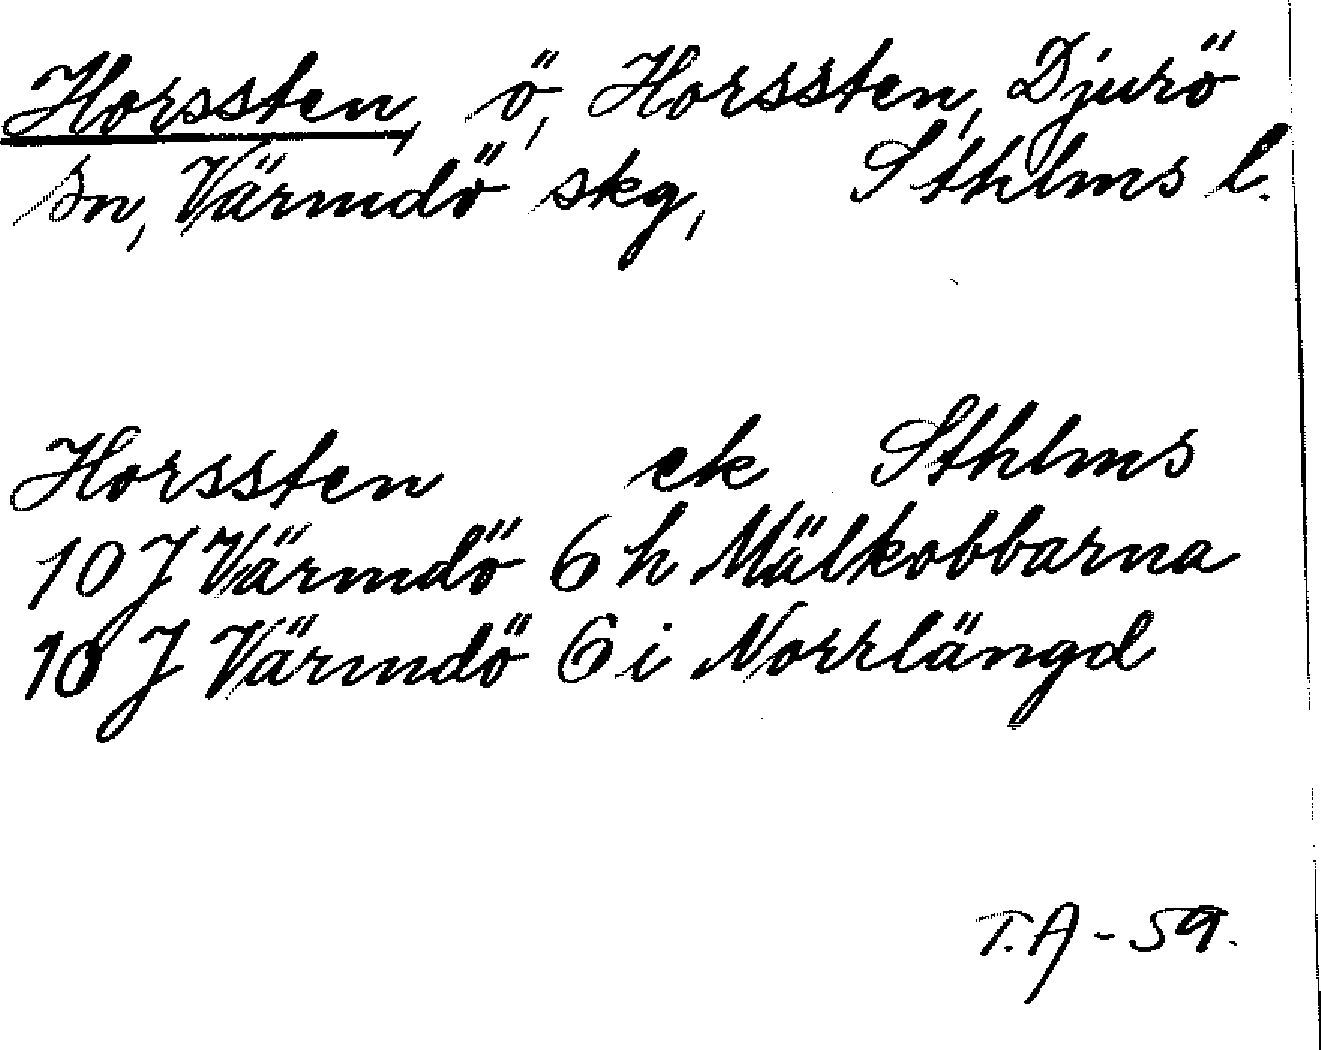 Horssten, ö, Horssten, Djurö
sn, Värmdö skg, Sthlms l.
Horssten ek Sthlms
10 J Värmdö 6 h Mälkobbarna
10 J Värmdö 6 i Norrlängd
T.A - 59.